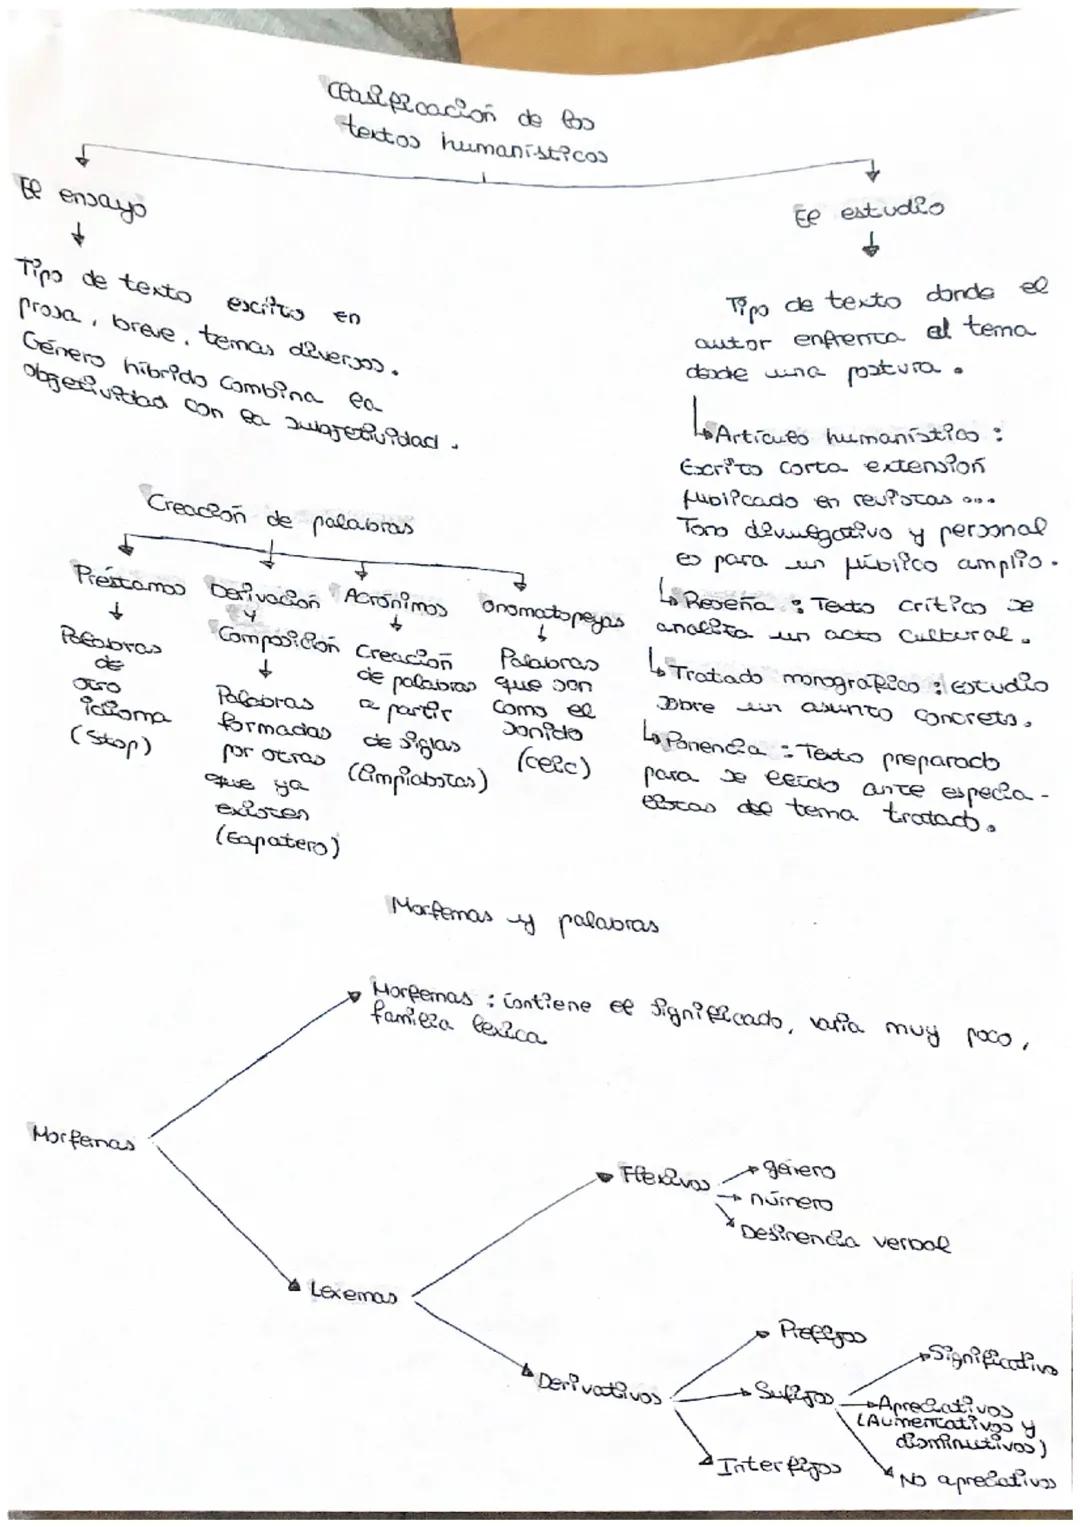 Clasificación de los
textos humanísticos
El ensayo
Tipo de texto escrito en
prosa, breve, temas diversos.
Género híbrido combina la
objetividad con la subjetividad.
El estudio
Tipo de texto donde el
autor enfrenta el tema
desde una postura.
Artículo humanístico:
Escrito corta extensión
publicado en revistas...
Tono divulgativo y personal
es para un público amplio.
Reseña: Texto crítico se
analiza un acto cultural.
Tratado monográfico: estudio
sobre un asunto concreto.
Ponencia: Texto preparado
para se leído ante especia-
listas del tema tratado.
Creación de palabras
Préstamos
Palabras
de
otro
idioma
(Stop)
Derivación
y
Composición
Palabras
formadas
por otras
que ya
existen
(Zapatero)
Acrónimos
Creación
de palabras
a partir
de siglas
(limpiabotas)
Onomatopeyas
Palabras
que son
como el
sonido
(clic)
Morfemas y palabras
Morfemas
Morfemas: contiene el significado, varía muy poco,
familia lexica
Lexemas
Flexivos
género
número
Desinencia verbal
Derivativos
Prefijos
Sufijos
Significativo
Apreciativos
(Aumentativos y
disminutivos)
No apreciativos
Interfijos